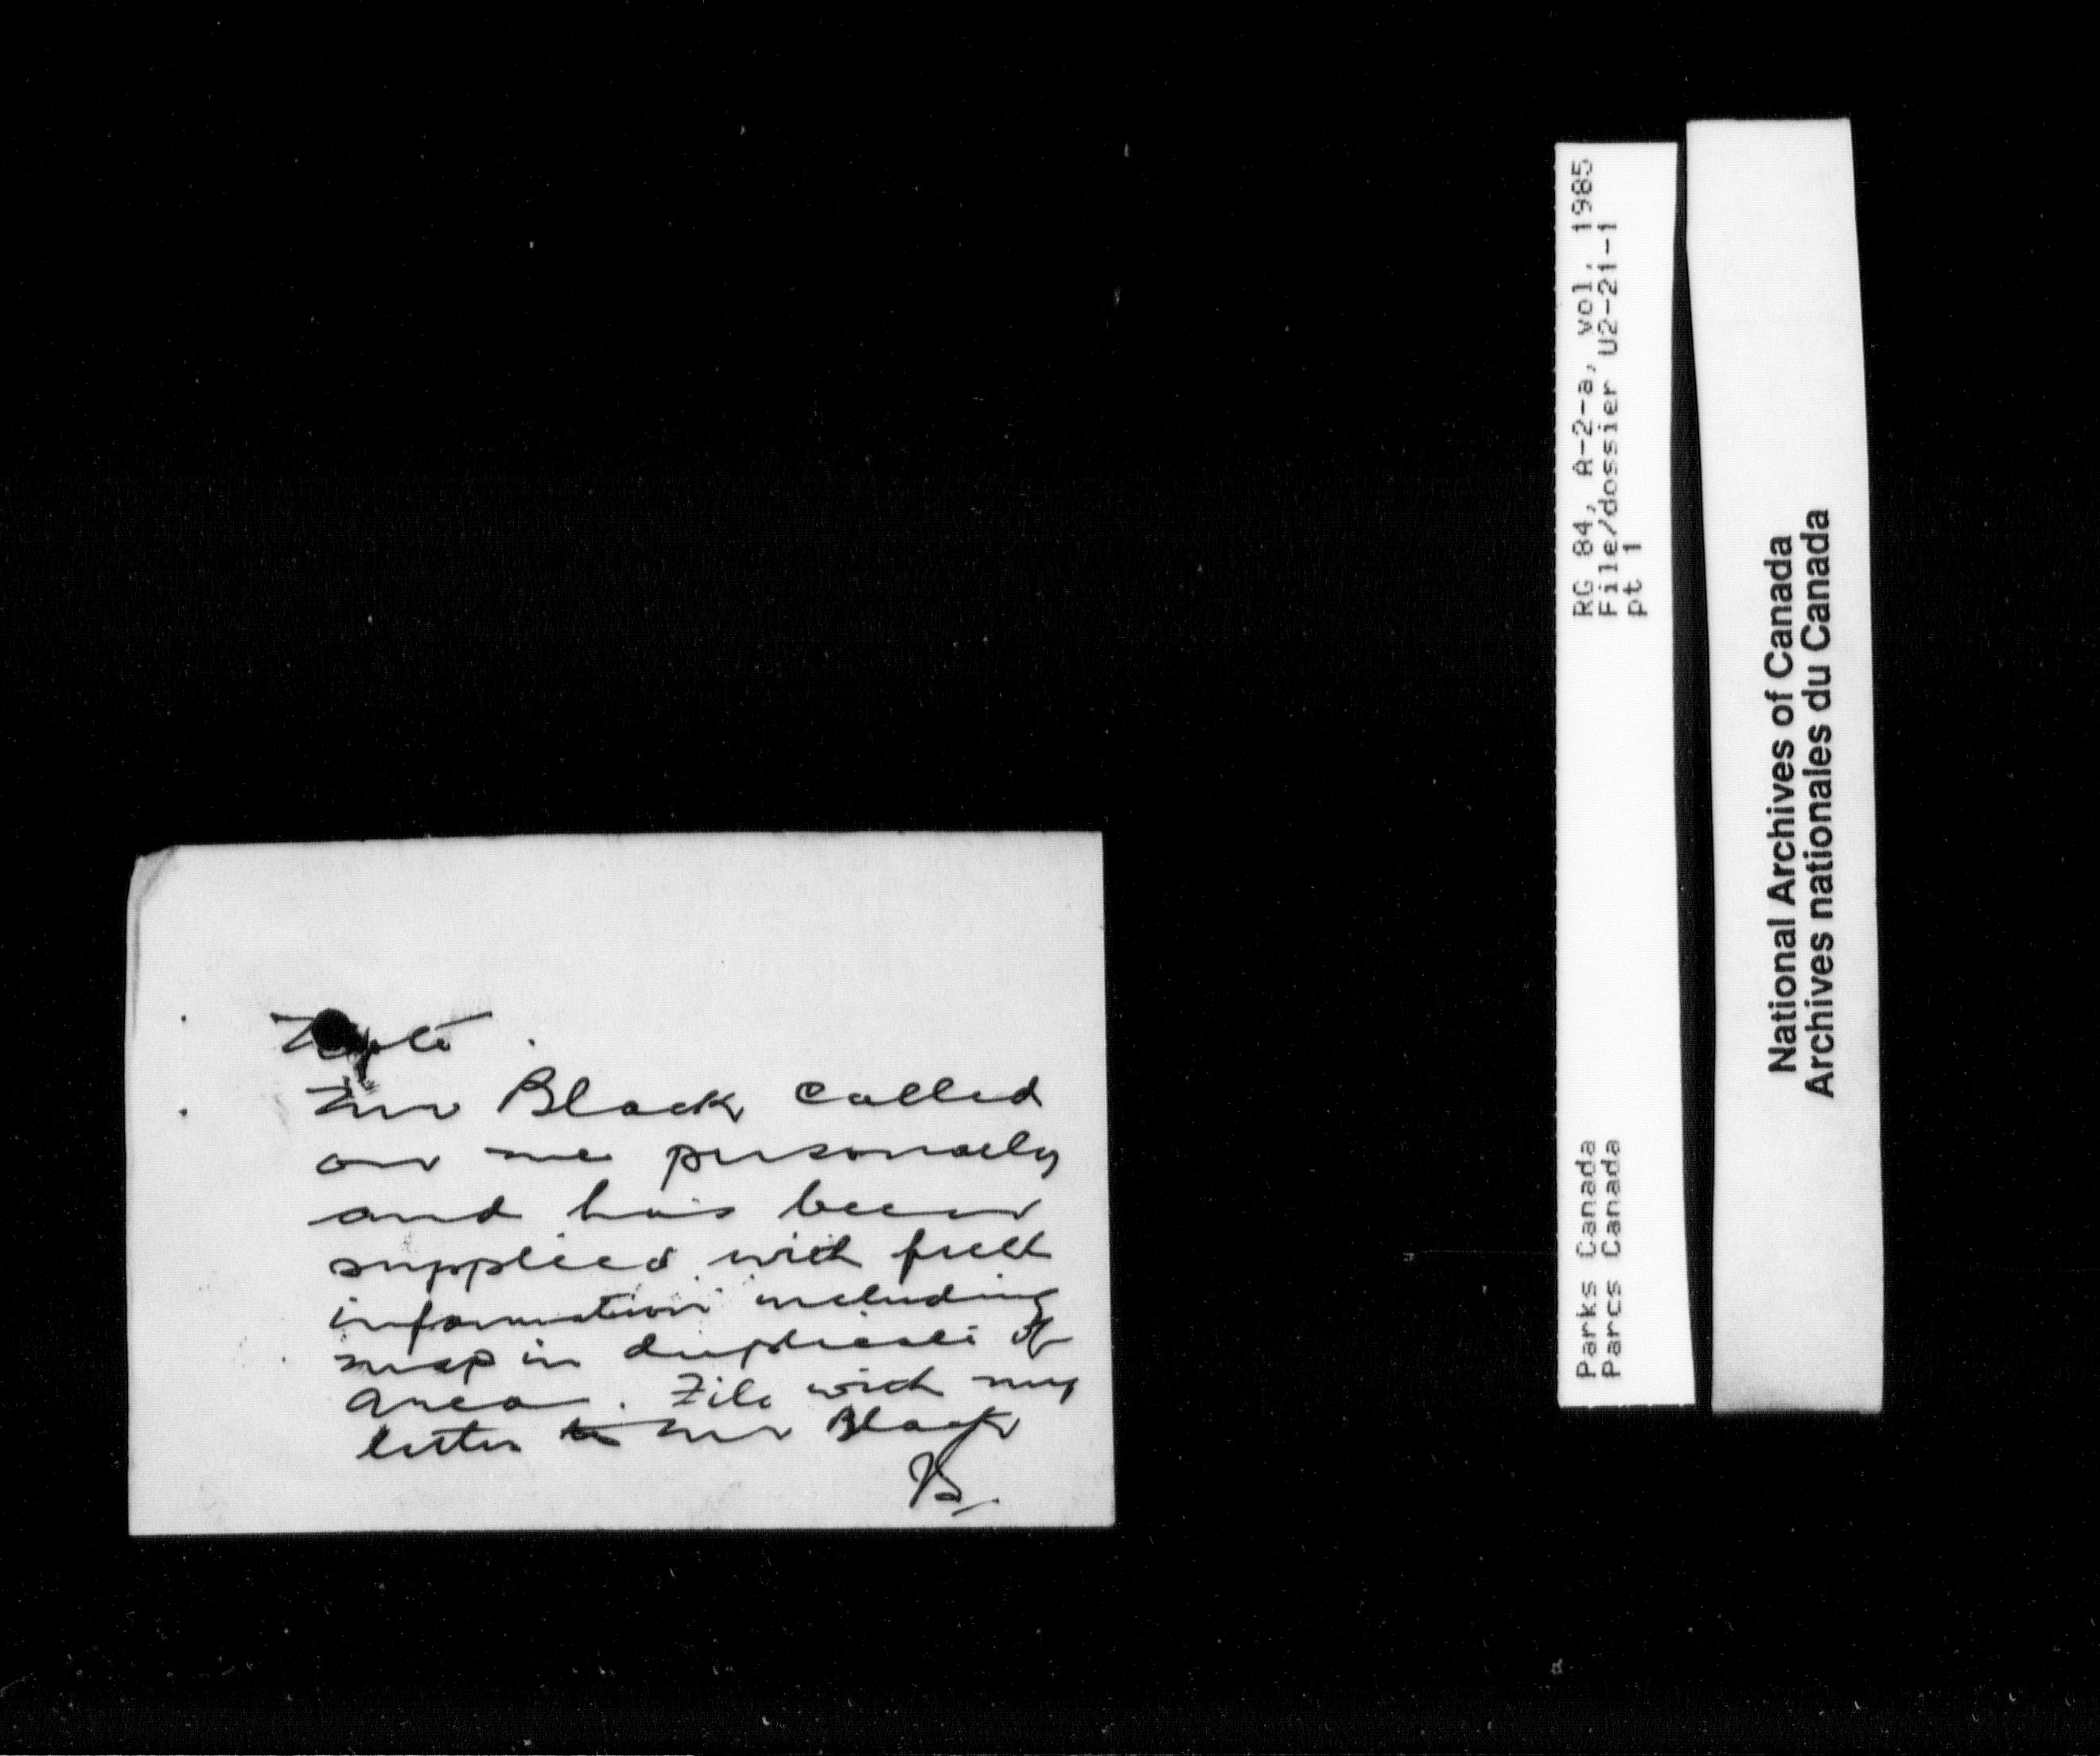 Note.
Mr Black called
on me personally
and has been
supplied with full
information including
map in duplicate of
area. File with my
letter to Mr Black
B.
RG 84, A-2-a, vol. 1985
File/dossier U2-21-1
pt 1
Parks Canada
Parcs Canada
National Archives of Canada
Archives nationales du Canada